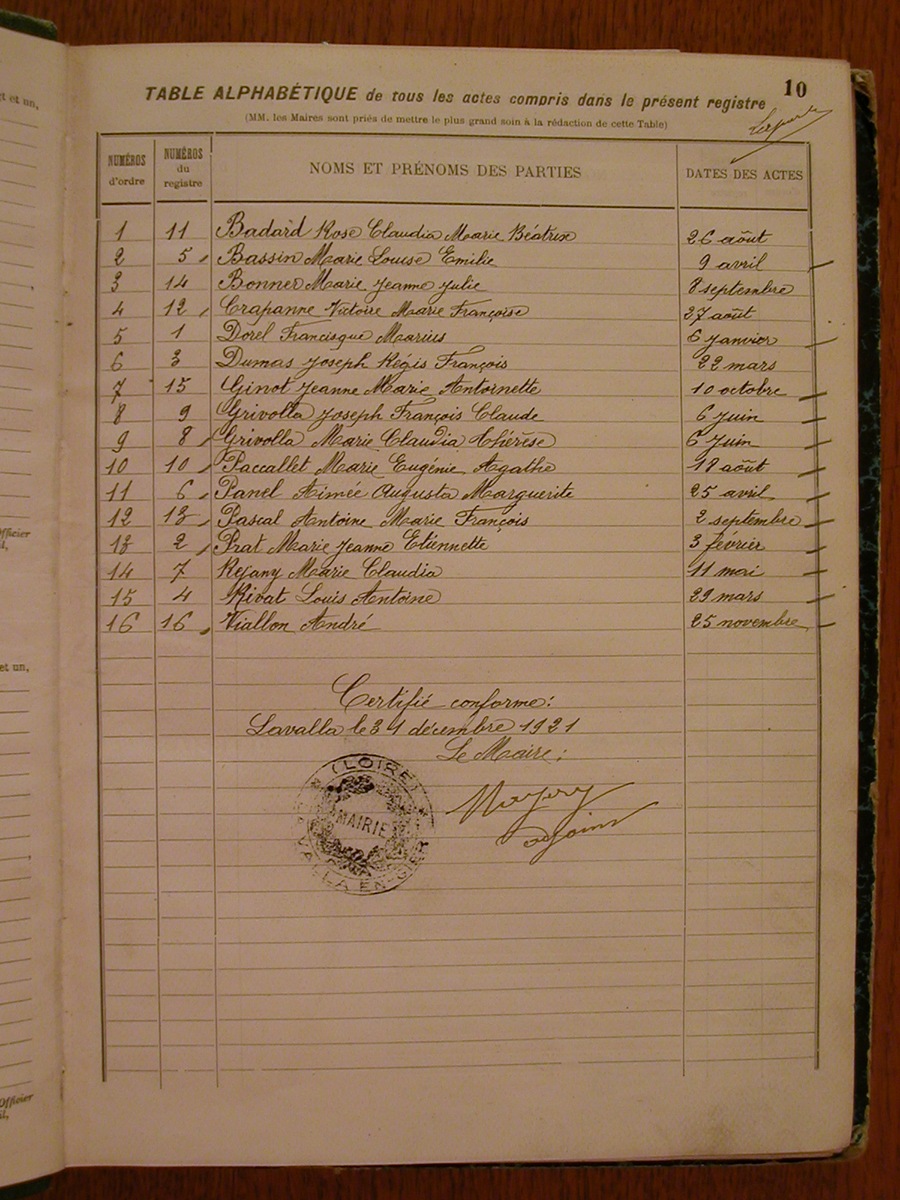 gt et un,
TABLE ALPHABÉTIQUE de tous les actes compris dans le présent registre
10
(MM. les Maires sont priés de mettre le plus grand soin à la rédaction de cette Table)
NUMÉROS d'ordre NUMÉROS du registre NOMS ET PRÉNOMS DES PARTIES DATES DES ACTES
1 11 Badard Rose Claudia Marie Béatrix 26 août
2 5 Bassin Marie Louise Emilie 9 avril
3 14 Bonner Marie Jeanne Julie 8 septembre
4 12 Crapanne Victoire Marie Françoise 27 août
5 1 Dorel Francisque Marius 6 janvier
6 3 Dumas Joseph Régis François 22 mars
7 15 Ginot Jeanne Marie Antoinette 10 octobre
8 9 Grivolla Joseph François Claude 6 juin
9 8 Grivolla Marie Claudia Thérèse 6 juin
10 10 Paccallet Marie Eugénie Agathe 18 août
11 6 Panel Aimée Augusta Marguerite 25 avril
12 13 Pascal Antoine Marie François 2 septembre
13 2 Prat Marie Jeanne Etiennette 3 février
14 7 Rejany Marie Claudia 11 mai
15 4 Rivat Louis Antoine 29 mars
16 16 Viallon André 25 novembre
Officier
et un,
Certifié conforme:
Lavalla le 31 décembre 1921
Le Maire:
(LOIRE)
MAIRIE
LAVALLA-EN-GIER
adjoint
Officier